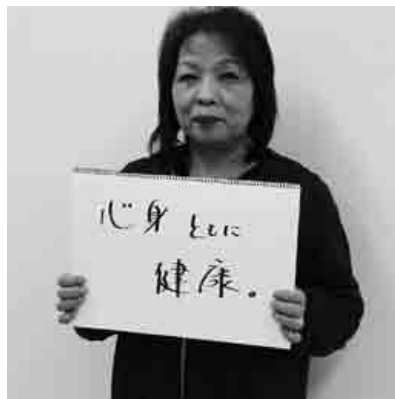 心身ともに
健康。